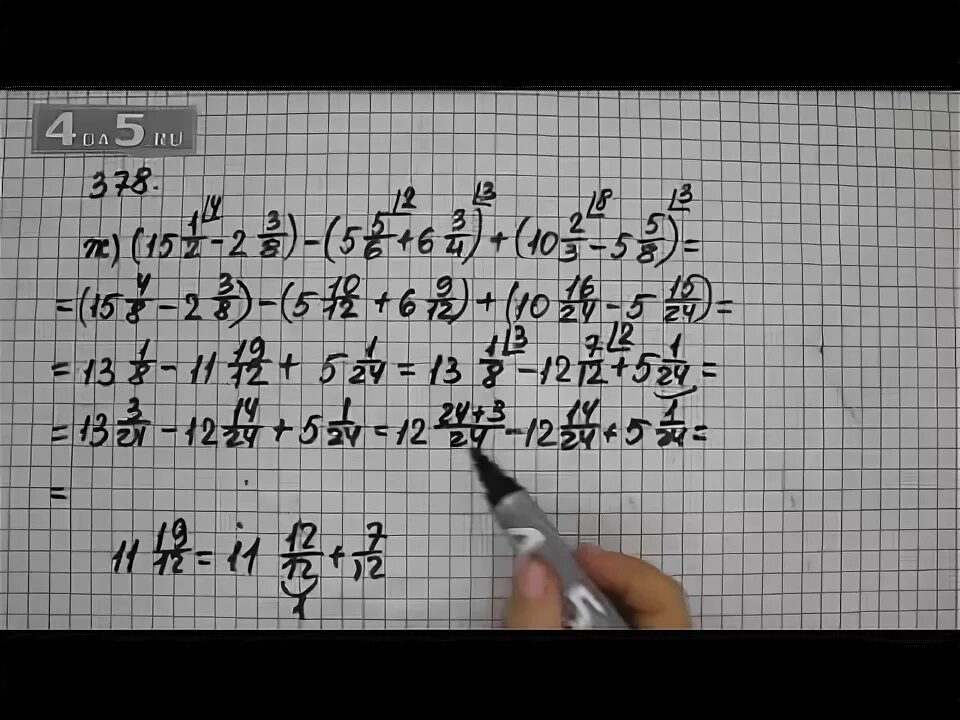 4 DA 5 RU
378.
ж) (15 1/2 ⌊4 - 2 3/8) - (5 5/6 ⌊2 + 6 3/4 ⌊3) + (10 2/3 ⌊8 - 5 5/8 ⌊3) =
= (15 4/8 - 2 3/8) - (5 10/12 + 6 9/12) + (10 16/24 - 5 15/24) =
= 13 1/8 - 11 19/12 + 5 1/24 = 13 1/8 ⌊3 - 12 7/12 ⌊2 + 5 1/24 =
= 13 3/24 - 12 14/24 + 5 1/24 = 12 24+3/24 - 12 14/24 + 5 1/24 =
=
11 19/12 = 11 12/12 + 7/12
1